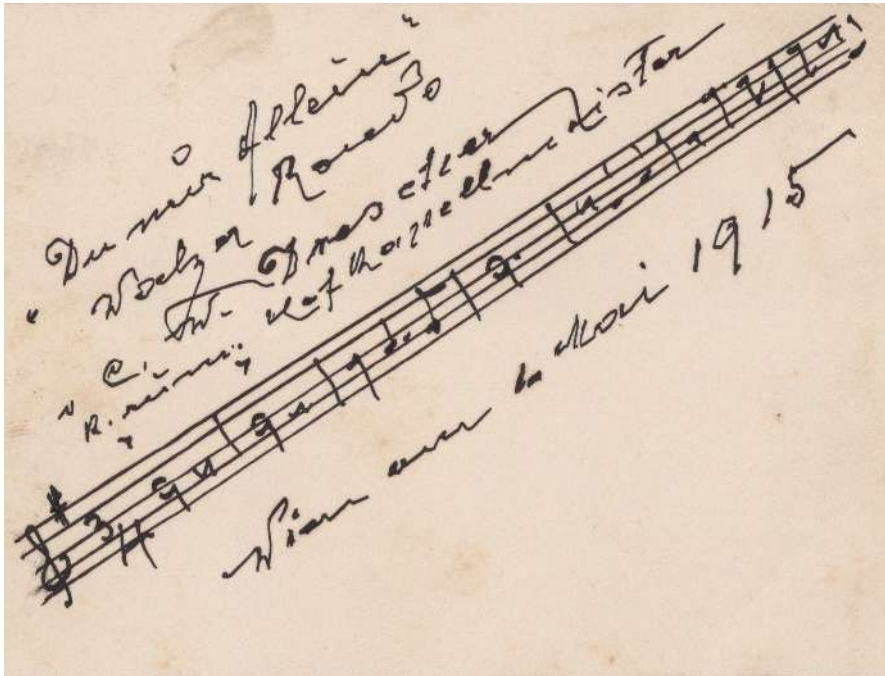 "Du nur Allein"
Walzer Rondo
C. W. Drescher
Hofkapellmeister
3
4
Wien am 6. Mai 1915